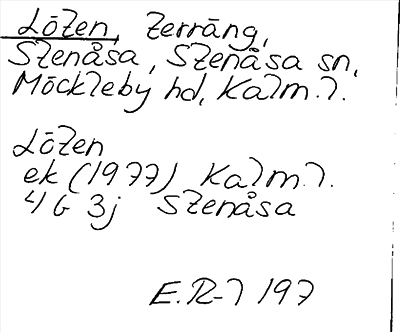 Löten, terräng,
Stenåsa, Stenåsa sn,
Möckleby hd, Kalm.l.
Löten
ek (1977) Kalm.l.
4G 3j Stenåsa
E.R-l 197